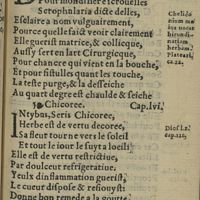 Pour mondifier escrouelles
Scrophularia dicte delles,
Esclaire a nom vulguairement,
Pource quelle faict veoir clairement
Elle guerist matrice, & collicque,
Aussy sert en lart Cirurgicque,
Pour chancre qui vient en la bouche,
Et pour fistules quant les touche,
La teste purge, & la desseiche
Au quart degre est chaulde & seiche
Chicoree. Cap. lvi.
INtybus, Seris Chicoree,
Herbe est de vertu decoree,
Sa fleur tourne vers le soleil
Et tout le iour le suyt a loeil:
Elle est de vertu restrictiue,
Par douleeur refrigeratiue,
Yeulx dinflammation guerist,
Le cueur dispose & resiouyst:
Donne bon remede a la goutte
Chelido
nium ma
ius vocat
hirundi-
nariam
herbam
Platear.
ca.22.
Diosf. l.2
cap.121.